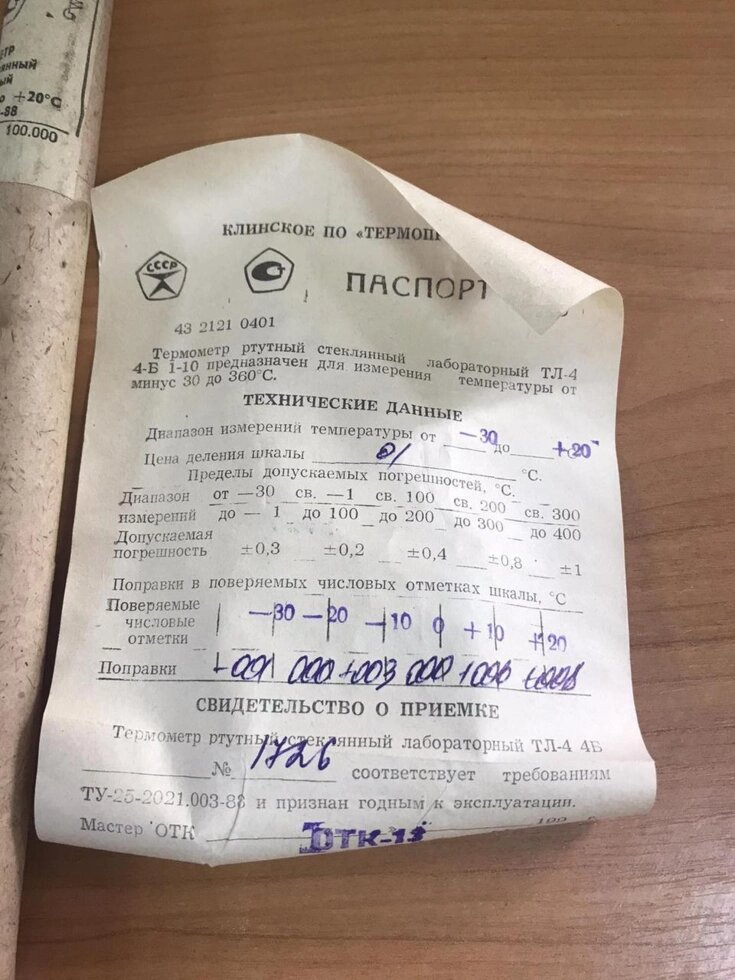 +20°С
-88
100.000
КЛИНСКОЕ ПО «ТЕРМОПР
СССР
ПАСПОРТ
43 2121 0401
Термометр ртутный стеклянный лабораторный ТЛ-4
4-Б 1-10 предназначен для измерения температуры от
минус 30 до 360°С.
ТЕХНИЧЕСКИЕ ДАННЫЕ
Диапазон измерений температуры от −30 до +20
Цена деления шкалы 01 °С.
Пределы допускаемых погрешностей, °С.
Диапазон от —30 св. —1 св. 100 св. 200 св. 300
измерений до — 1 до 100 до 200 до 300 до 400
Допускаемая
погрешность ±0,3 ±0,2 ±0,4 ±0,8 ±1
Поправки в поверяемых числовых отметках шкалы, °С
Поверяемые
числовые −30 −20 −10 0 +10 +20
отметки
Поправки 000 +003 000
СВИДЕТЕЛЬСТВО О ПРИЕМКЕ
Термометр ртутный стеклянный лабораторный ТЛ-4 4Б
№ 1726 соответствует требованиям
ТУ-25-2021.003-88 и признан годным к эксплуатации.
Мастер ОТК ОТК-13